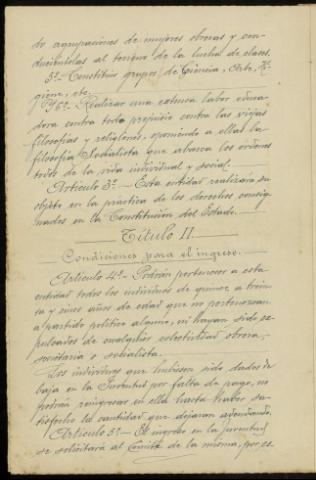 do agrupaciones de mujeres obreras y con-
duciéndolas al terreno de la lucha de clases.
5º- Constituir grupos de Ciencia, Arte, Hi-
giene, etc.
Y 6º- Realizar una extensa labor educa-
dora contra todo prejuicio contra las viejas
filosofías y religiones, oponiendo a ellas la
filosofía Socialista que abarca los órdenes
todos de la vida individual y social.
Artículo 3º- Esta entidad realizará su
objeto en la práctica de los derechos consig-
nados en la Constitución del Estado.
Título II.
Condiciones para el ingreso.
Artículo 4º- Podrán pertenecer a esta
entidad todos los individuos de quince a trein-
ta y cinco años de edad que no pertenezcan
a partido político alguno, ni hayan sido ex-
pulsados de cualquier colectividad obrera,
societaria o socialista.
Los individuos que hubiesen sido dados de
baja en la Juventud por falta de pago, no
podrán reingresar en ella hasta haber sa-
tisfecho la cantidad que dejaran adeudando.
Artículo 5º- El ingreso en la Juventud
se solicitará al Comité de la misma, por es-